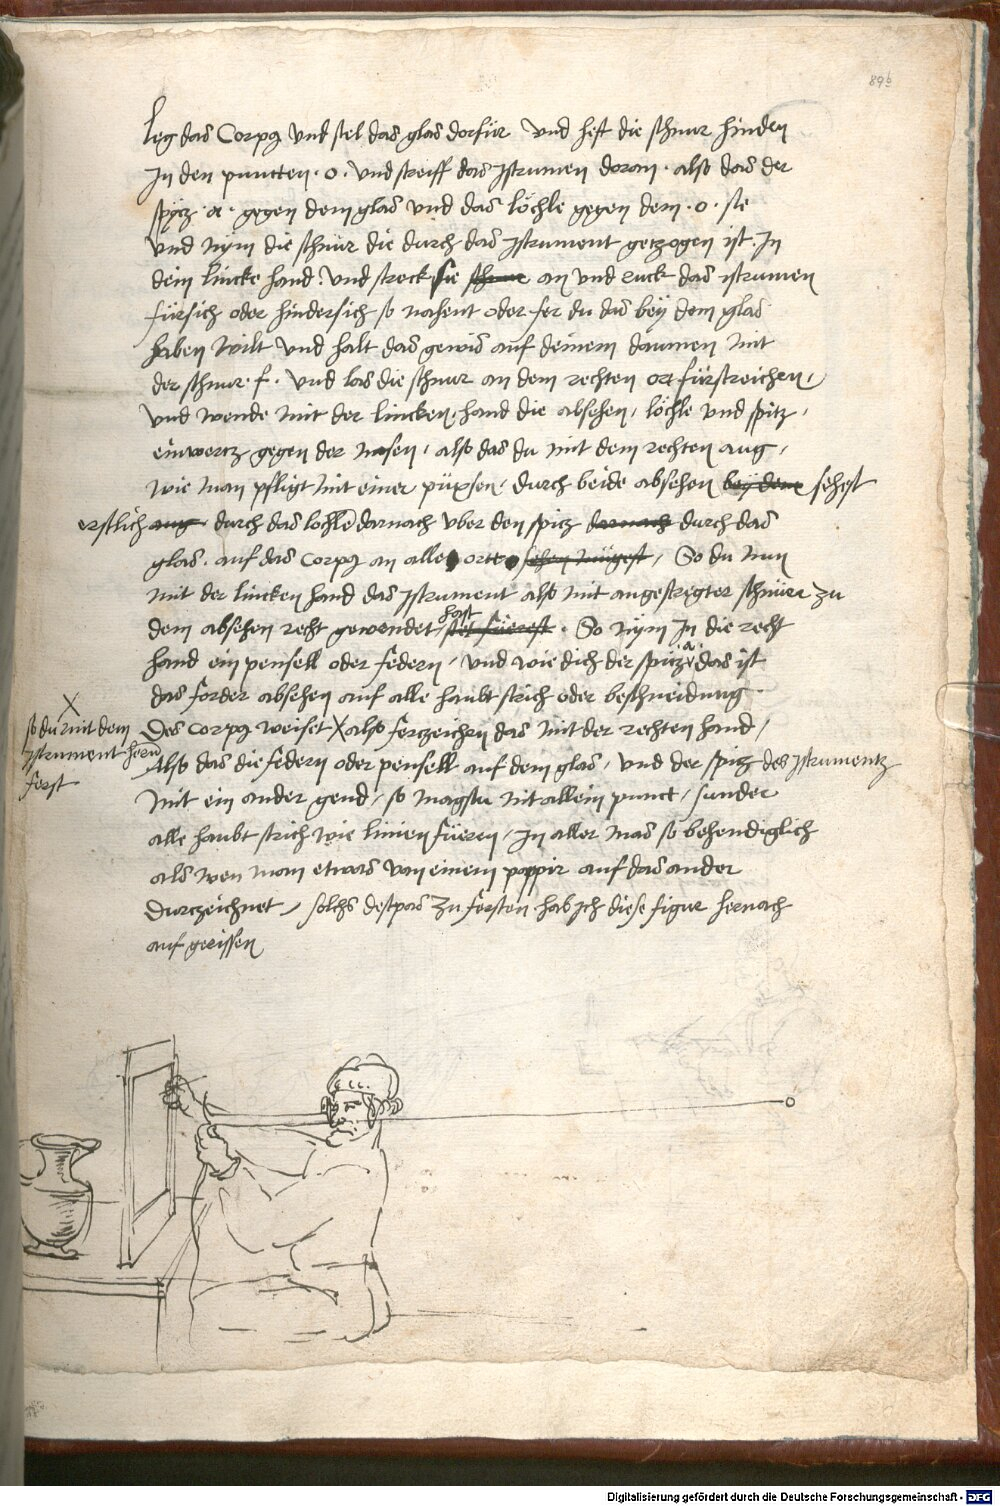 89b
Leg das Corpus und stel das glas dorfür und heft die schnur hinden
In den puncten · o · und streiff das Istrumen doran · also das der
spytz · a · gegen dem glas und das löchle gegen dem · o · ste
und nym die schnür die durch das Istrument getzogen ist · In
dein lincke hand · Und streck sie schnur an und ruck das istrumen
fürsich oder hindersich so nahent oder fer du das bey dem glas
haben wilt und halt das gewis auf deinem daumen mit
der schnur · f · und las die schnur an dem rechten or fürstreichen /
und wende mit der lincken hand die absehen / löchle und spitz /
einwertz gegen der nasen / also das du mit dem rechten aug /
wie man pfligt mit einer püxsen / durch beide absehen bey dem sehest
erstlich aug durch das lochle darnach uber den spitz darnach durch das
glas · auf das Corpus an alle orte sehen mügest / So du nun
mit der lincken hand das Istrument also mit angestregter schnüre zu
dem absehen recht gewendet hast · So nym In die recht
hand ein pensell oder federn / und wie dich der spitz a das ist
das forder absehen auf alle haubt strich oder beschneidung
Des Corpus weiset X also fertzeichen das mit der rechten hand /
X
so du mit dem
Istrument herum
ferst
Also das die federn oder pensell auf dem glas / und der spitz des Istrumentz
mit ein ander gend / so magstu nit allein punct / sunder
alle haubt strich wie linien füeren / In aller mas so behendiglich
als wen man etwas van einem pappir auf das ander
durtzeichnet / solchs destpas zu fersten hab ich diese figur hernach
auf gerissen
o
Digitalisierung gefördert durch die Deutsche Forschungsgemeinschaft - DFG